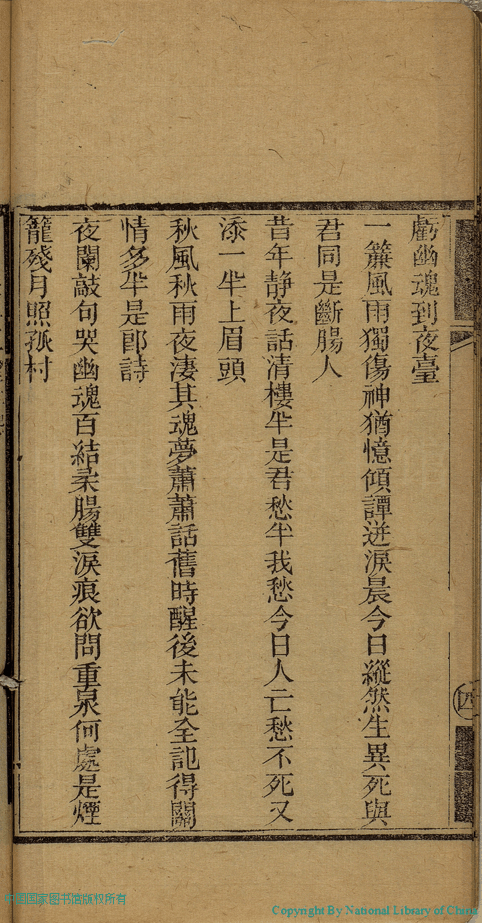 虧幽魂到夜臺
一簾風雨獨傷神猶憶傾譚迸淚晨今日縱然生異死與
君同是斷腸人
昔年静夜話清樓半是君愁半我愁今日人亡愁不死又
添一半上眉頭
秋風秋雨夜淒其魂夢蕭蕭話舊時醒後未能全記得關
情多半是郎詩
夜闌敲句哭幽魂百結柔腸雙淚痕欲問重泉何處是煙
籠殘月照孤村
四
中国国家图书馆版权所有
Copyright By National Library of China